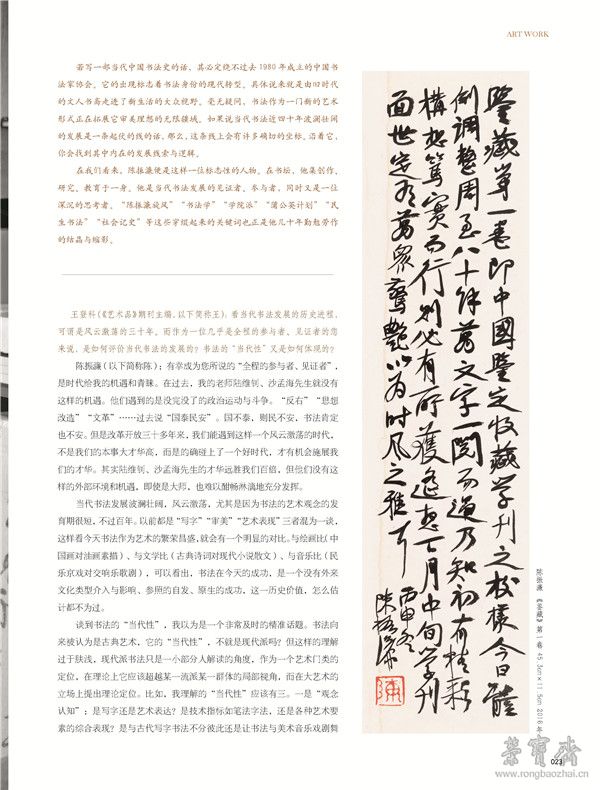 ART WORK
若写一部当代中国书法史的话，其必定绕不过去1980年成立的中国书
法家协会。它的出现标志着书法身份的现代转型。具体说来就是由旧时代
的文人书斋走进了新生活的大众视野。毫无疑问，书法作为一门新的艺术
形式正在拓展它审美理想的无限疆域。如果说当代书法近四十年波澜壮阔
的发展是一条起伏的线的话，那么，这条线上会有许多确切的坐标，沿着它，
你会找到其中内在的发展线索与逻辑。
在我们看来，陈振濂便是这样一位标志性的人物。在书坛，他集创作、
研究、教育于一身。他是当代书法发展的见证者、参与者，同时又是一位
深沉的思考者。“陈振濂旋风”“书法学”“学院派”“蒲公英计划”“民
生书法”“社会记史”等这些字缀起来的关键词也正是他几十年勤勉劳作
的结晶与缩影。
王登科（《艺术品》期刊主编，以下简称王）：看当代书法发展的历史进程，
可谓是风云激荡的三十年。而作为一位几乎是全程的参与者、见证者的您
来说，是如何评价当代书法的发展的？书法的“当代性”又是如何体现的？
陈振濂（以下简称陈）：有幸成为您所说的“全程的参与者、见证者”，
是时代给我的机遇和青睐。在过去，我的老师陆维钊、沙孟海先生就没有
这样的机遇。他们遇到的是没完没了的政治运动与斗争。“反右”“思想
改造”“文革”……过去说“国泰民安”。国不泰，则民不安，书法肯定
也不安。但是改革开放三十多年来，我们能遇到这样一个风云激荡的时代，
不是我们的本事大才华高，而是的确碰上了一个好时代，才有机会施展我
们的才华。其实陆维钊、沙孟海先生的才华远胜我们百倍，但他们没有这
样的外部环境和机遇，即使是大师，也难以酣畅淋漓地充分发挥。
当代书法发展波澜壮阔，风云激荡，尤其是因为书法的艺术观念的发
育期很短，不过百年。以前都是“写字”“审美”“艺术表现”三者混为一谈，
这样看今天书法作为艺术的繁荣昌盛，就会有一个明显的对比。与绘画比（中
国画对油画素描）、与文学比（古典诗词对现代小说散文）、与音乐比（民
乐京戏对交响乐歌剧），可以看出，书法在今天的成功，是一个没有外来
文化类型介入与影响、参照的自发、原生的成功，这一历史价值，怎么估
计都不为过。
谈到书法的“当代性”，我以为是一个非常及时的精准话题。书法向
来被认为是古典艺术，它的“当代性”，不就是现代派吗？但这样的理解
过于肤浅，现代派书法只是一小部分人解读的角度，作为一个艺术门类的
定位，在理论上它应该超越某一流派某一群体的局部视角，而在大艺术的
立场上提出理论定位。比如，我理解的“当代性”应该有三。一是“观念
认知”：是写字还是艺术表达？是技术指标如笔法字法，还是各种艺术要
素的综合表现？是与古代写字书法不分彼此还是让书法与美术音乐戏剧舞
鉴藏第一卷即中國鉴定收藏学刊之校樣今日體
例調整周至八十餘萬文字一閲而過乃知初有精彩
構想篤實而行则必有所獲遙想下月中旬学刊
面世定为萬眾驚艷以为时风之雅可
丙申冬
陈振濂
陈振濂 《鉴藏》第1卷 45.3cm×11.5cm 2016年
023
榮寶齋
www.rongbaozhai.cn